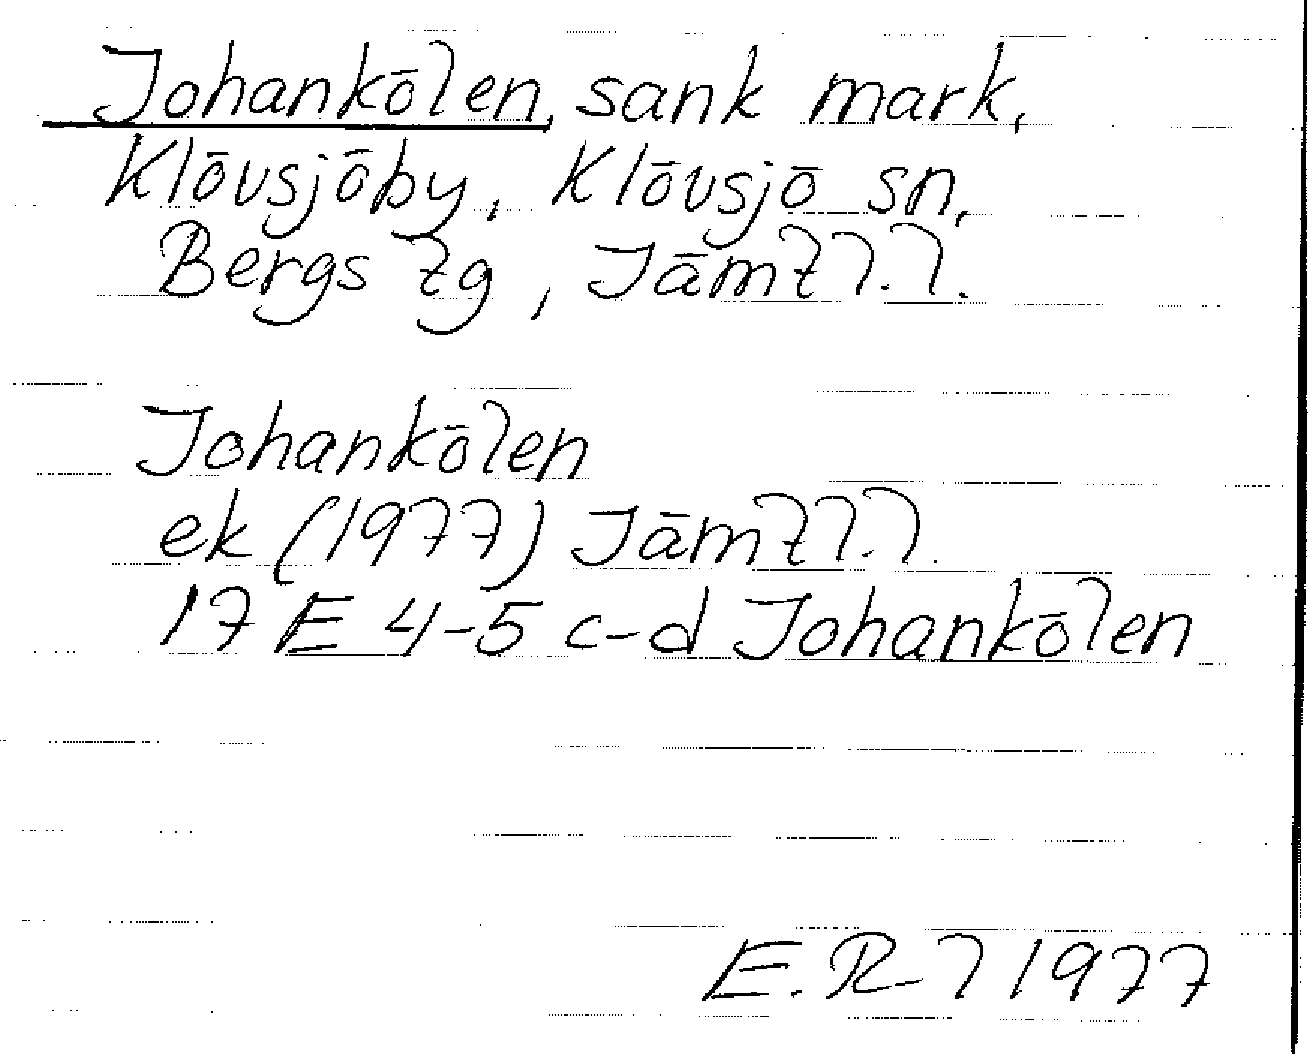 Johankölen, sank mark,
Klövsjöby, Klövsjö sn,
Bergs tg, Jämtl. l.
Johankölen
ek (1977) Jämtl. l.
17 E 4-5 c-d Johankölen
E. R-l 1977